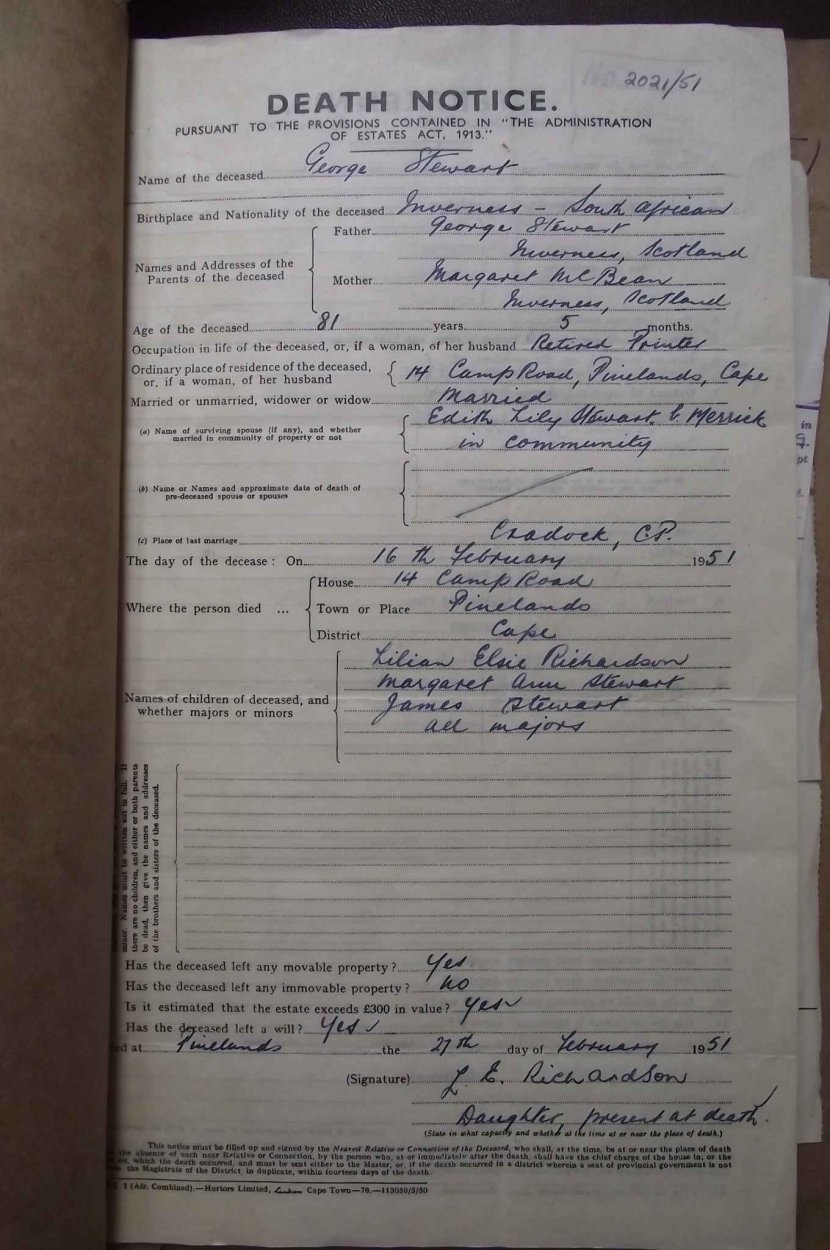 No 2021/51
DEATH NOTICE.
PURSUANT TO THE PROVISIONS CONTAINED IN "THE ADMINISTRATION
OF ESTATES ACT, 1913."
Name of the deceased George Stewart
Birthplace and Nationality of the deceased Inverness - South African
Names and Addresses of the Parents of the deceased
Father George Stewart
Inverness, Scotland
Mother Margaret McBean
Inverness, Scotland
Age of the deceased 81 years 5 months.
Occupation in life of the deceased, or, if a woman, of her husband Retired Printer
Ordinary place of residence of the deceased,
or, if a woman, of her husband 14 Camp Road, Pinelands, Cape
Married or unmarried, widower or widow Married
(a) Name of surviving spouse (if any), and whether
married in community of property or not
Edith Lily Stewart b. Merrick
in community
(b) Name or Names and approximate date of death of
pre-deceased spouse or spouses
(c) Place of last marriage Cradock, C.P.
The day of the decease: On 16th February 1951
Where the person died ...
House 14 Camp Road
Town or Place Pinelands
District Cape
Names of children of deceased, and
whether majors or minors
Lilian Elsie Richardson
Margaret Ann Stewart
James Stewart
all majors
minor. Names must be written out in full. If
there are no children, and either or both parents
be dead, then give the names and addresses
of the brothers and sisters of the deceased.
Has the deceased left any movable property? Yes
Has the deceased left any immovable property? no
Is it estimated that the estate exceeds £300 in value? Yes
Has the deceased left a will? Yes
ed at Pinelands the 27th day of February 1951
(Signature) L. E. Richardson
Daughter, present at death.
(State in what capacity and whether at the time at or near the place of death.)
This notice must be filled up and signed by the Nearest Relative or Connection of the Deceased, who shall, at the time, be at or near the place of death
the absence of such near Relative or Connection, by the person who, at or immediately after the death, shall have the chief charge of the house in, or the
which the death occurred, and must be sent either to the Master, or, if the death occurred in a district wherein a seat of provincial government is not
the Magistrate of the District, in duplicate, within fourteen days of the death.
1 (Afr. Combined).—Hortors Limited, Cape Town—78.—113050/5/50
in
pt